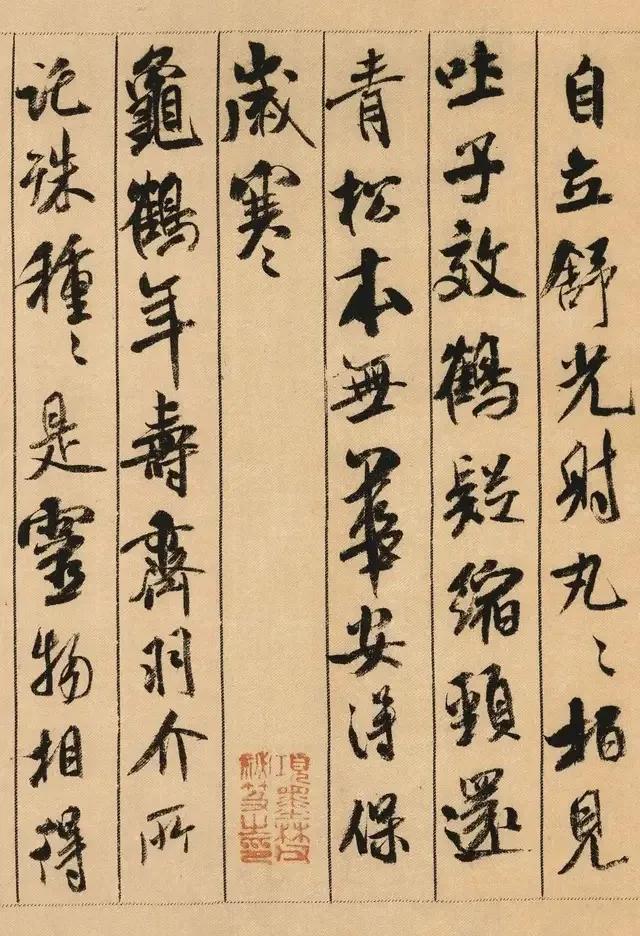 自立舒光射丸〻柏見
吐子效鶴疑縮頸還
青松本無華安得保
歲寒
龜鶴年壽齊羽介所
託殊種〻是靈物相得
項墨林父
秘笈之印